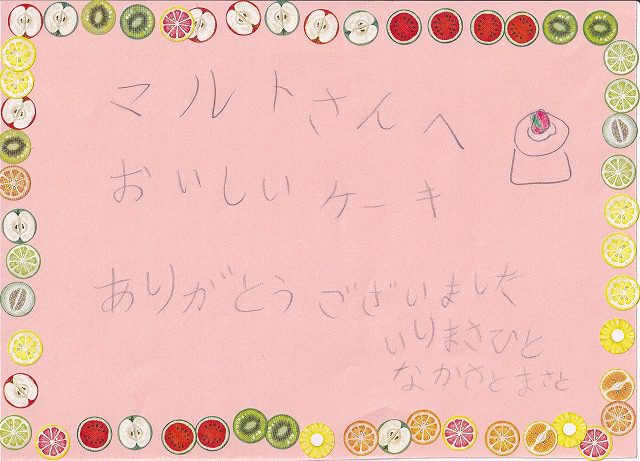 マルトさんへ
おいしいケーキ
ありがとうございました
いりまさひと
なかさとまさと